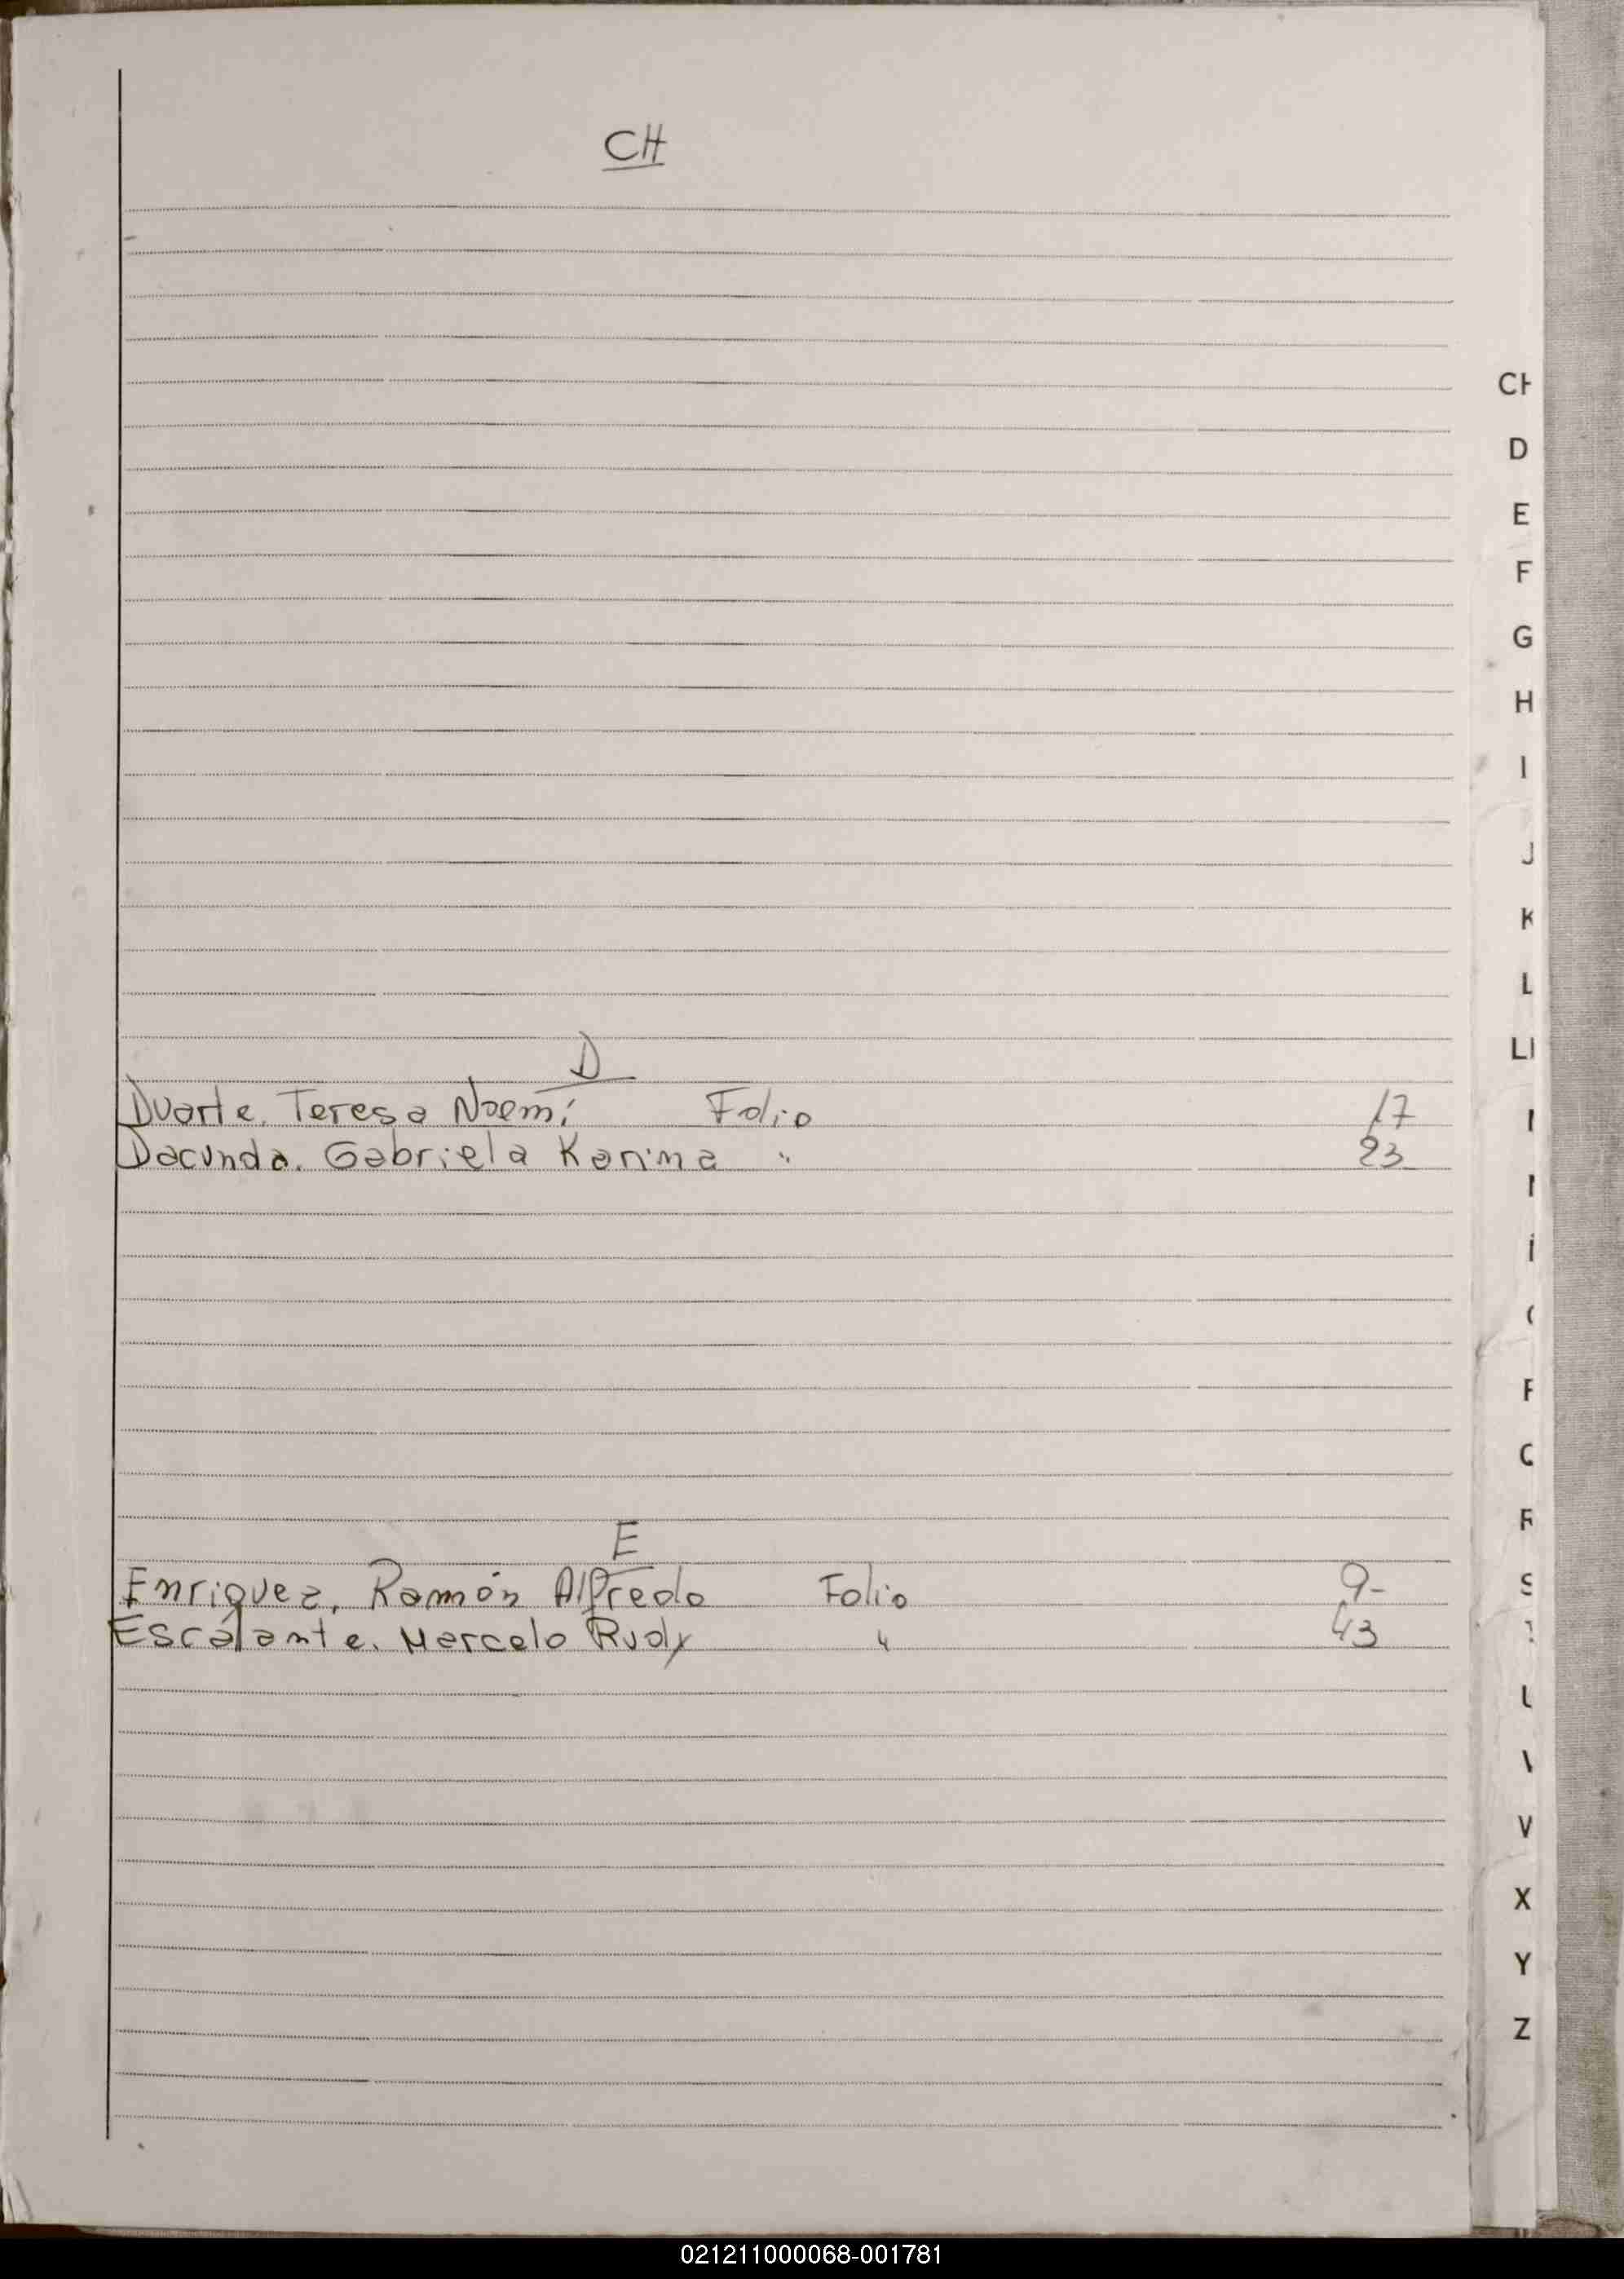 CH
D
Duarte, Teresa Noemí Folio 17
Dacunda. Gabriela Karina " 23
E
Enriquez, Ramón Alfredo Folio 9-
Escalante. Marcelo Rudy " 43
CH
D
E
F
G
H
I
J
K
L
Ll
F
C
F
S
U
V
X
Y
Z
021211000068-001781